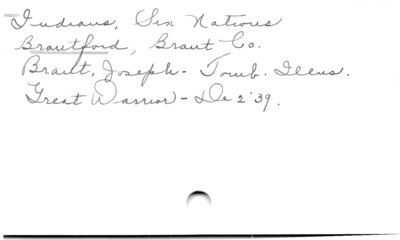 Indians, Six Nations
Brantford, Brant Co.
Brant, Joseph - Tomb. Illus.
Great Warrior - De 2'39.